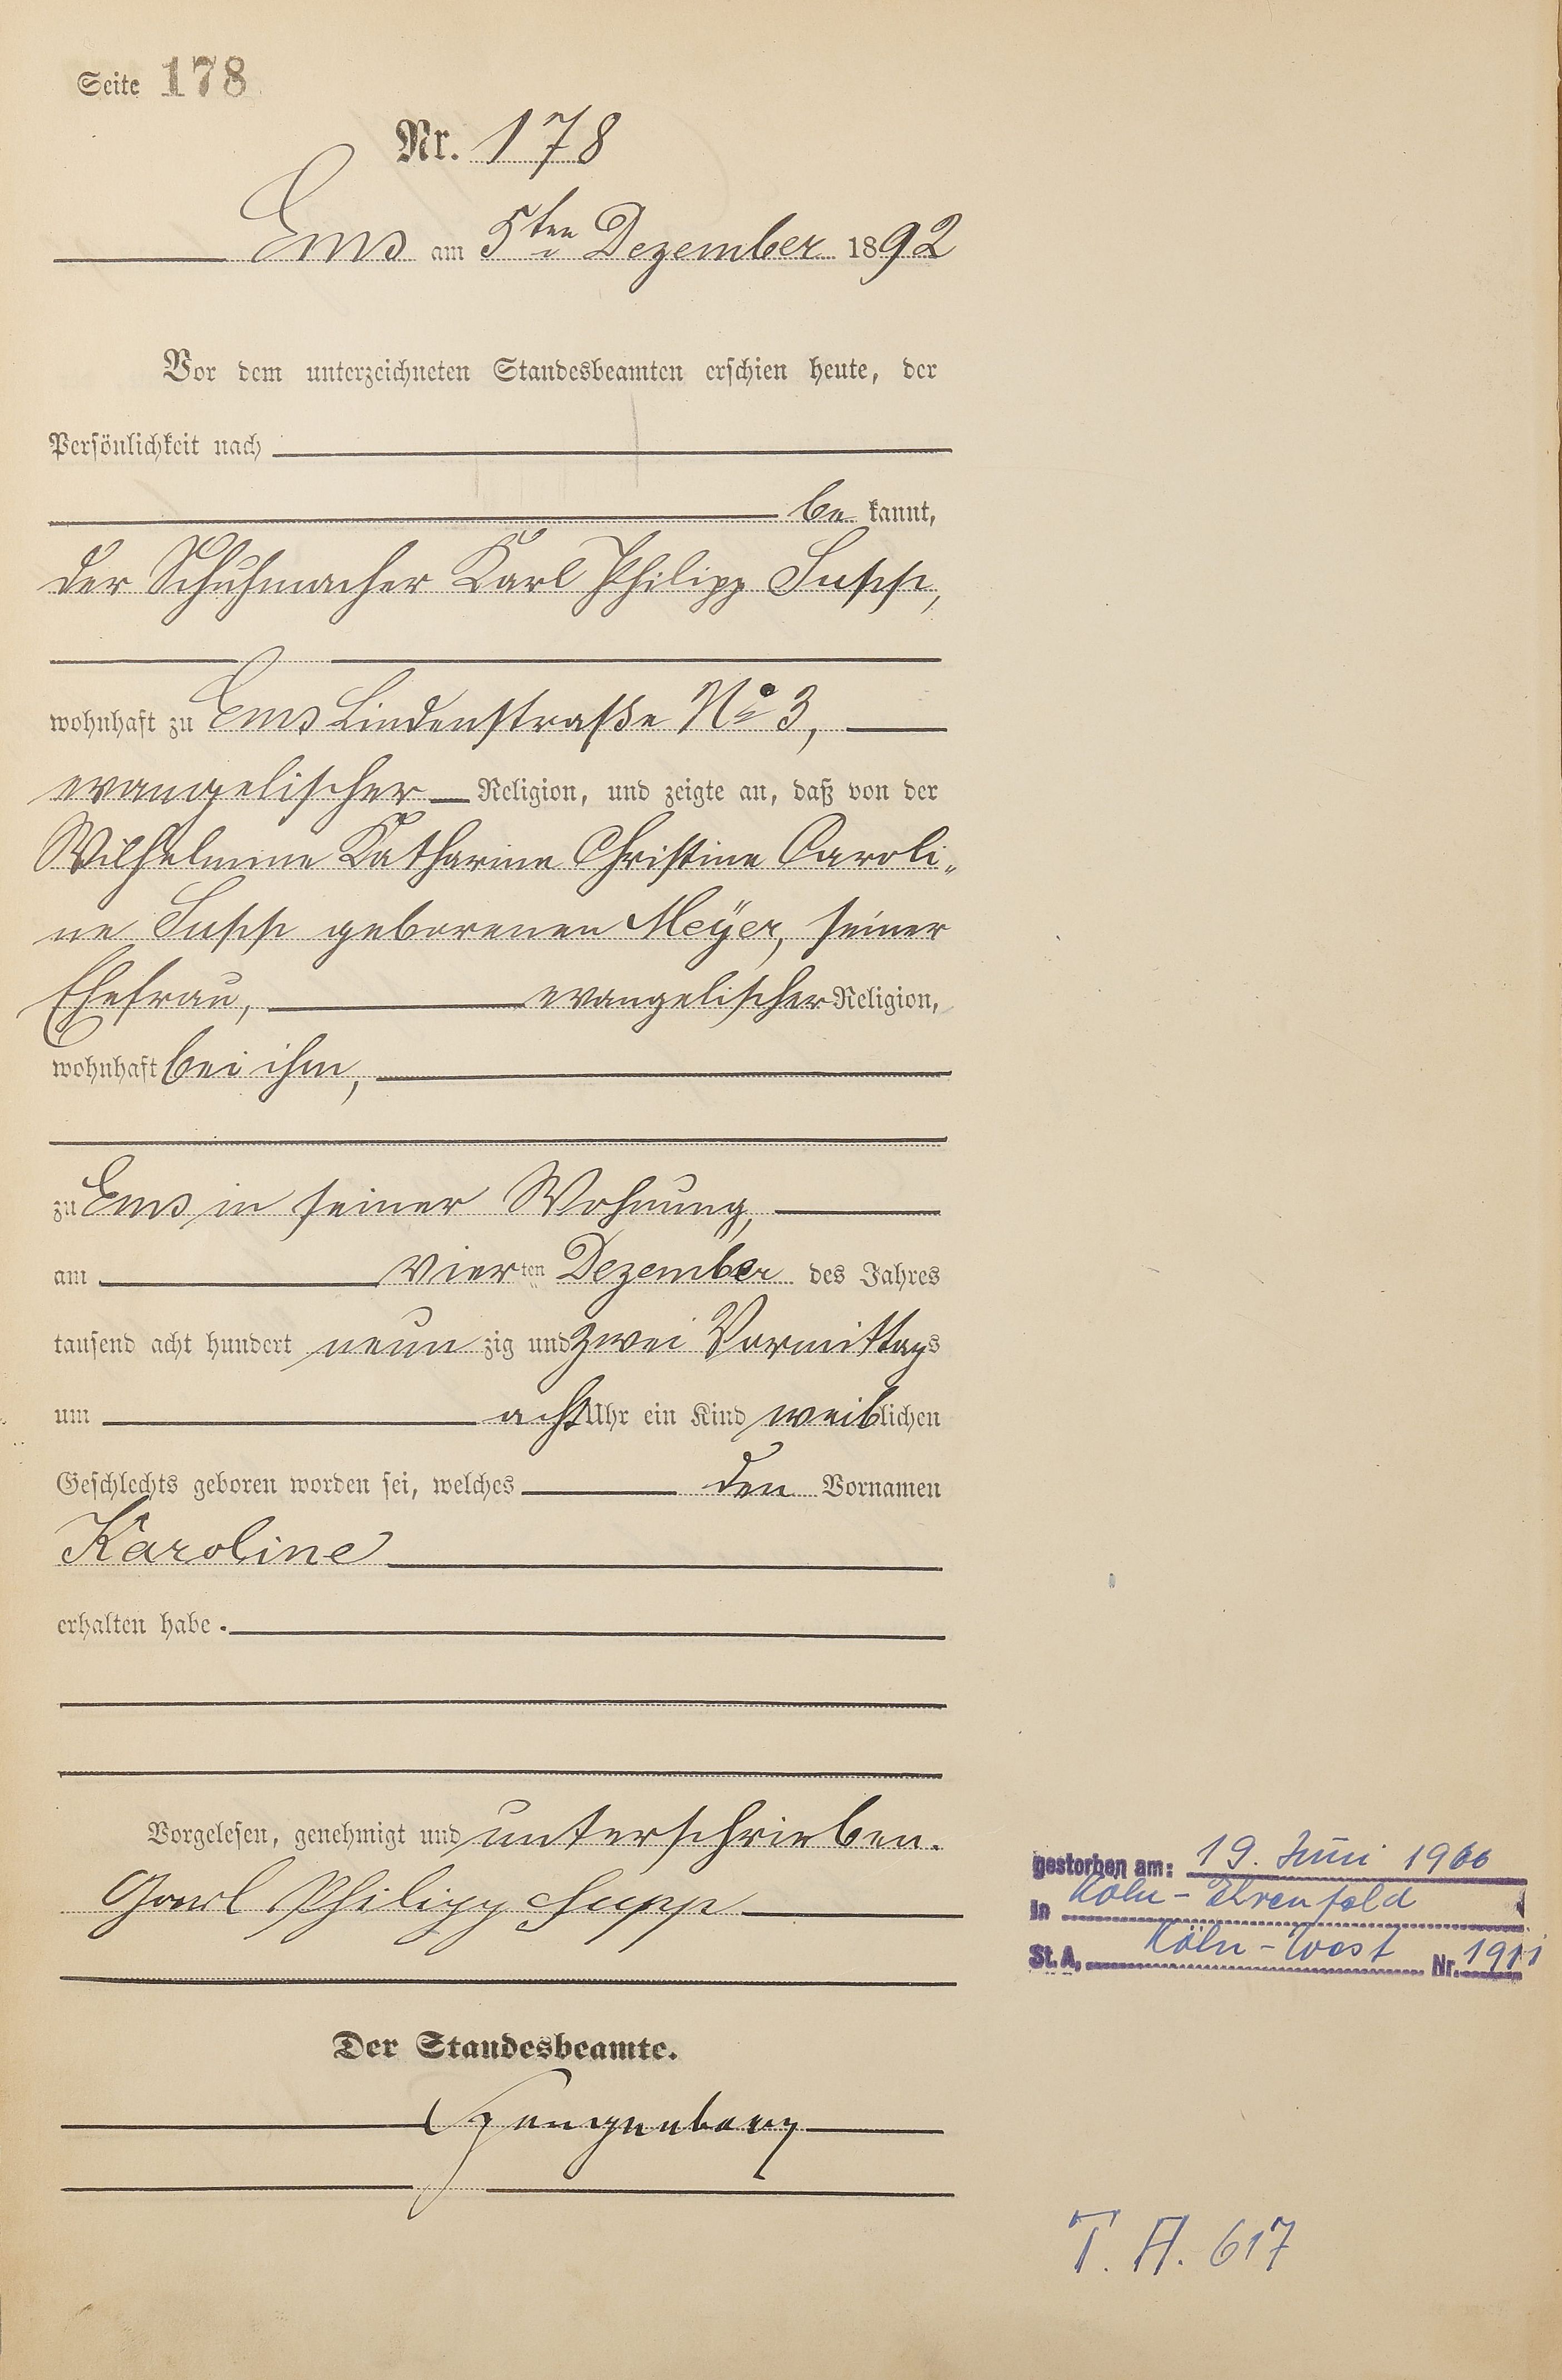 Seite 178
Nr. 178
Ems am 5ten Dezember 1892
Vor dem unterzeichneten Standesbeamten erschien heute, der
Persönlichkeit nach
be kannt,
der Schuhmacher Karl Philipp Supp,
wohnhaft zu Ems Lindenstraße No 3,
evangelischer Religion, und zeigte an, daß von der
Wilhelmine Katharine Christine Caroli„
ne Supp geborenen Meÿer, seiner
Ehefrau, evangelischer Religion,
wohnhaft bei ihm,
zu Ems in seiner Wohnung,
am vierten Dezember des Jahres
tausend acht hundert neun zig und zwei Vormittags
um acht Uhr ein Kind weiblichen
Geschlechts geboren worden sei, welches den Vornamen
Karoline
erhalten habe.
Vorgelesen, genehmigt und unterschrieben.
Carl Philipp Supp
Der Standesbeamte.
gestorben am: 19. Juni 1966
in Köln-Ehrenfeld
St.A. Köln-West Nr. 1911
T. A. 617